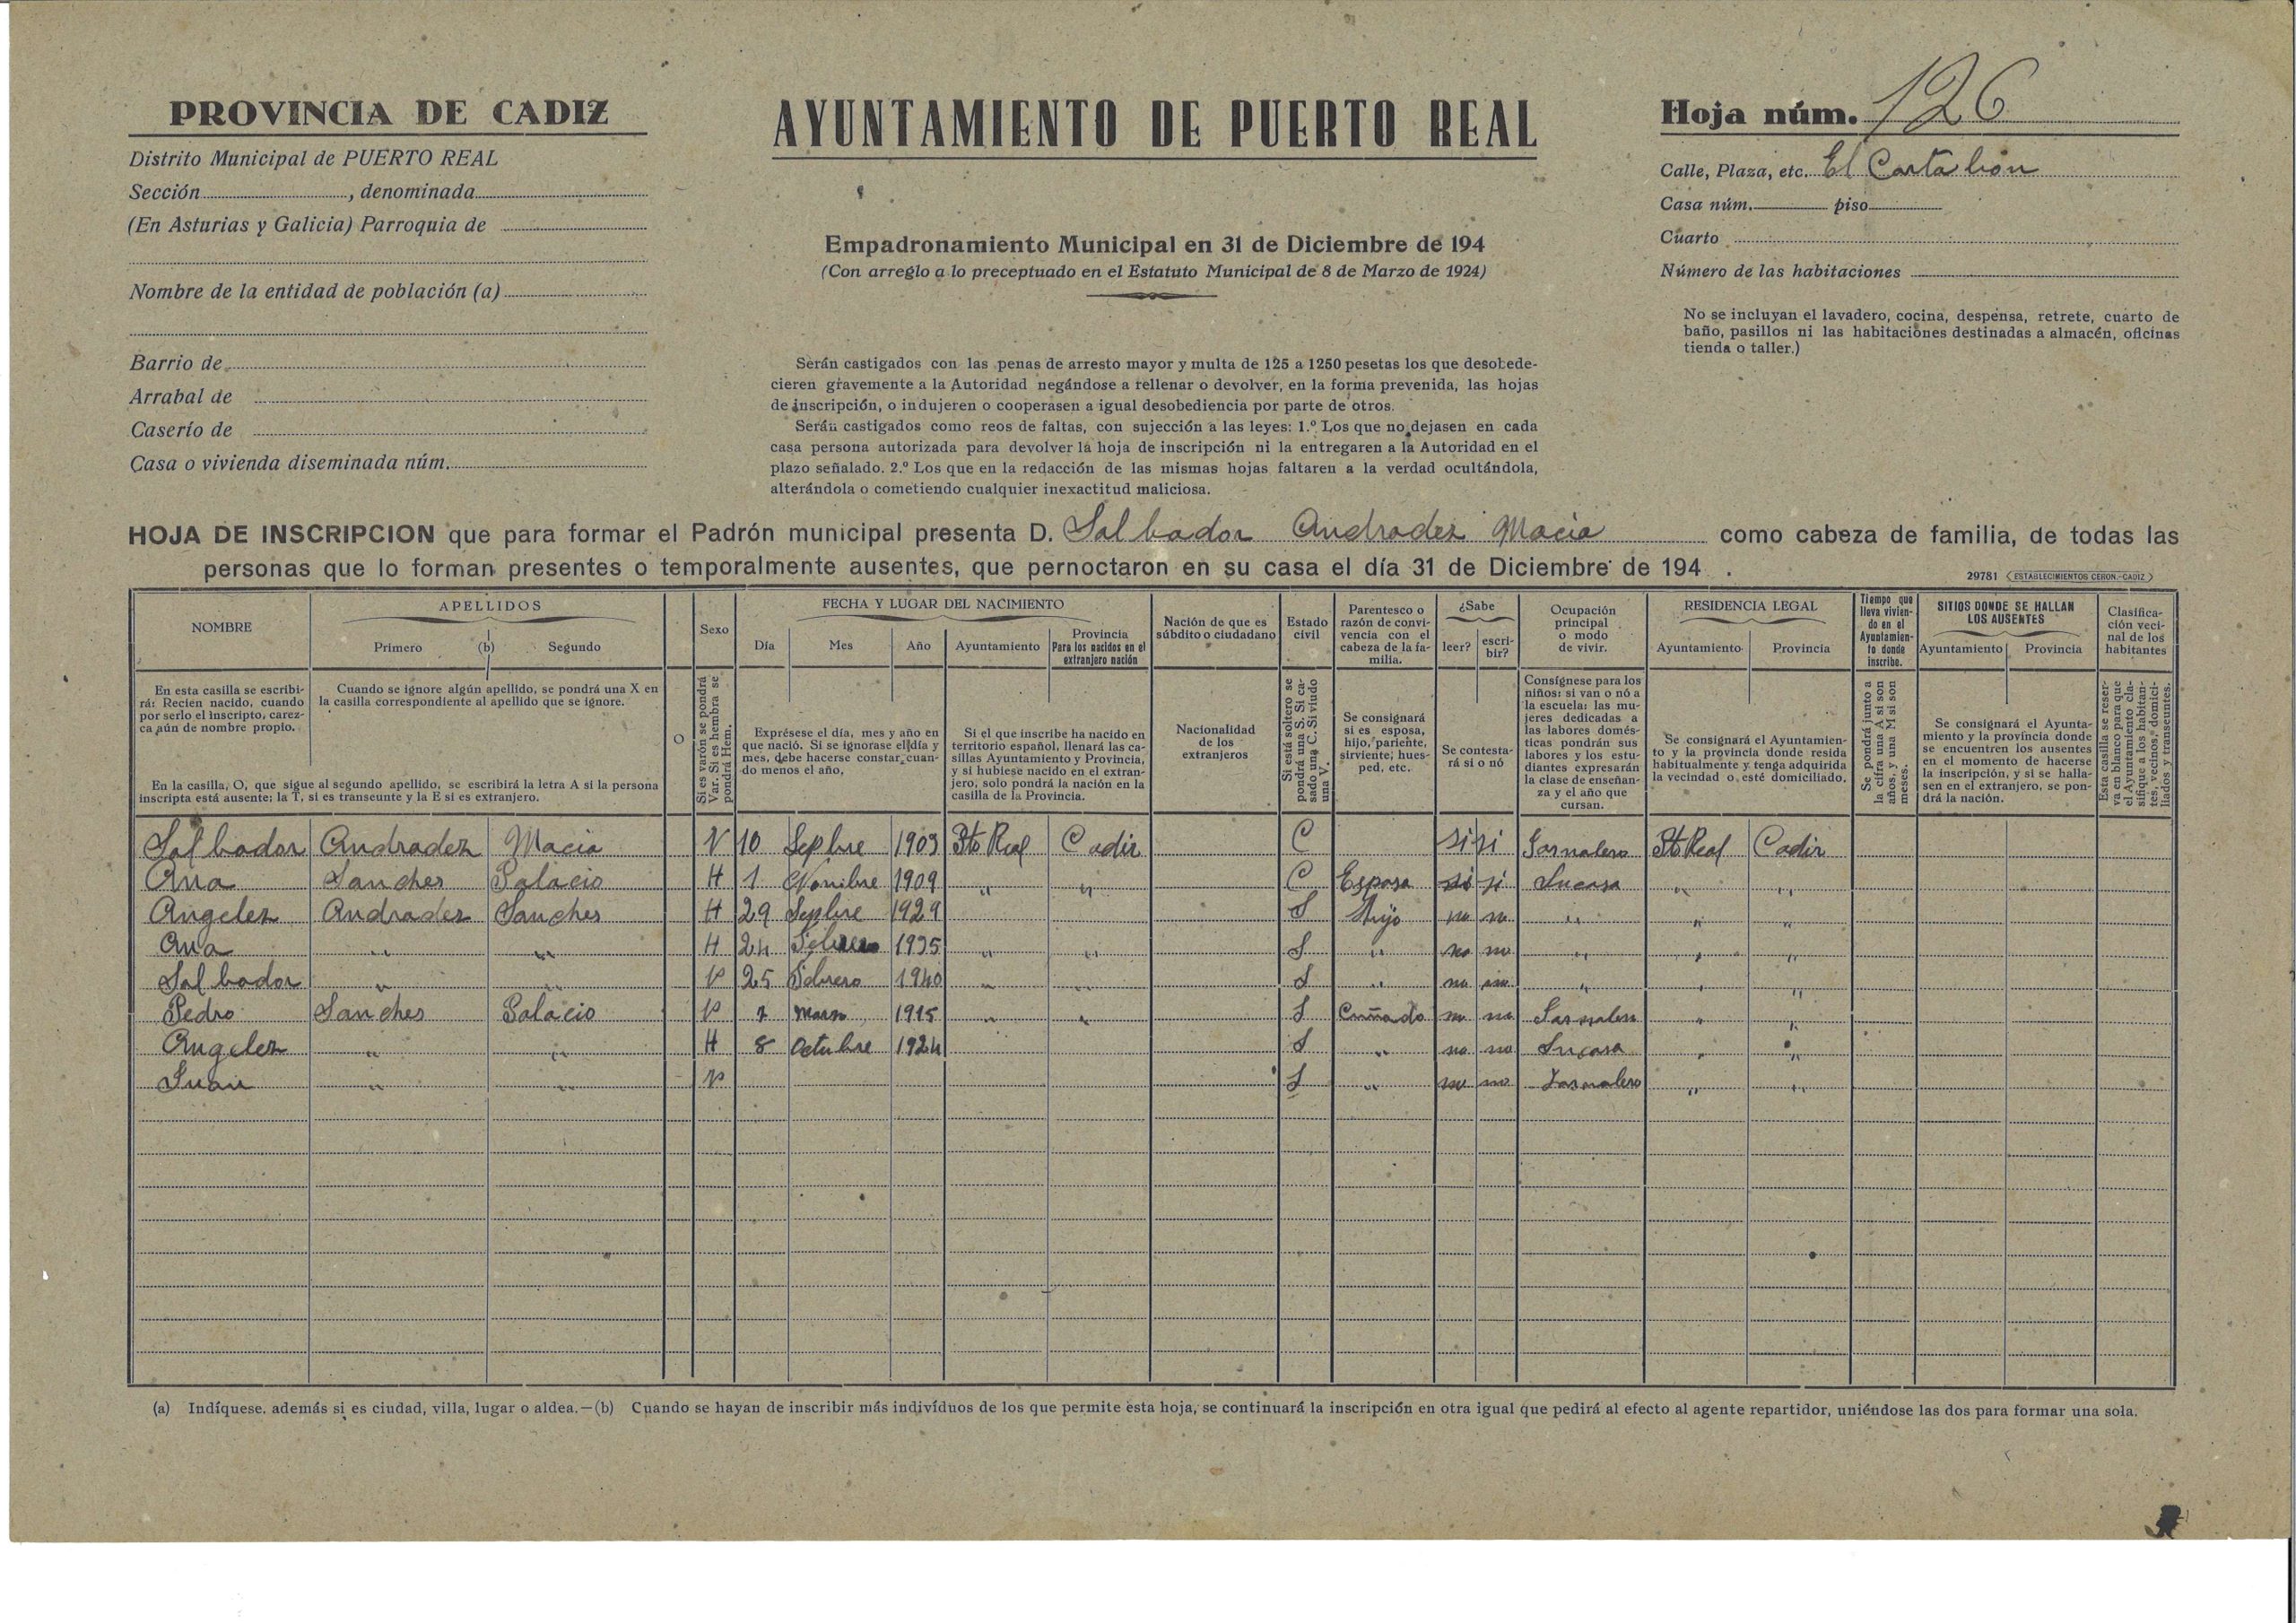 PROVINCIA DE CADIZ
Distrito Municipal de PUERTO REAL
Sección , denominada
(En Asturias y Galicia) Parroquia de
Nombre de la entidad de población (a)
Barrio de
Arrabal de
Caserío de
Casa o vivienda diseminada núm.
AYUNTAMIENTO DE PUERTO REAL
Empadronamiento Municipal en 31 de Diciembre de 194
(Con arreglo a lo preceptuado en el Estatuto Municipal de 8 de Marzo de 1924)
Serán castigados con las penas de arresto mayor y multa de 125 a 1250 pesetas los que desobede-
cieren gravemente a la Autoridad negándose a rellenar o devolver, en la forma prevenida, las hojas
de inscripción, o indujeren o cooperasen a igual desobediencia por parte de otros.
Serán castigados como reos de faltas, con sujección a las leyes: 1.º Los que no dejasen en cada
casa persona autorizada para devolver la hoja de inscripción ni la entregaren a la Autoridad en el
plazo señalado. 2.º Los que en la redacción de las mismas hojas faltaren a la verdad ocultándola,
alterándola o cometiendo cualquier inexactitud maliciosa.
Hoja núm. 126
Calle, Plaza, etc. El
Casa núm. piso
Cuarto
Número de las habitaciones
No se incluyan el lavadero, cocina, despensa, retrete, cuarto de
baño, pasillos ni las habitaciones destinadas a almacén, oficinas
tienda o taller.)
HOJA DE INSCRIPCION que para formar el Padrón municipal presenta D. Salbador Andrades Macia como cabeza de familia, de todas las
personas que lo forman presentes o temporalmente ausentes, que pernoctaron en su casa el día 31 de Diciembre de 194 .
29781 (ESTABLECIMIENTOS CERON.-CADIZ)
NOMBRE
APELLIDOS
Primero (b) Segundo
Sexo
FECHA Y LUGAR DEL NACIMIENTO
Día Mes Año Ayuntamiento
Provincia
Para los nacidos en el
extranjero nación
Nación de que es
súbdito o ciudadano
Estado
civil
Parentesco o
razón de convi-
vencia con el
cabeza de la fa-
milia.
¿Sabe
leer? escri-
bir?
Ocupación
principal
o modo
de vivir.
RESIDENCIA LEGAL
Ayuntamiento Provincia
Tiempo que
lleva vivien-
do en el
Ayuntamien-
to donde
inscribe.
SITIOS DONDE SE HALLAN
LOS AUSENTES
Ayuntamiento Provincia
Clasifica-
ción veci-
nal de los
habitantes
En esta casilla se escribi-
rá: Recien nacido, cuando
por serlo el inscripto, carez-
ca aún de nombre propio.
Cuando se ignore algún apellido, se pondrá una X en
la casilla correspondiente al apellido que se ignore.
En la casilla, O, que sigue al segundo apellido, se escribirá la letra A si la persona
inscripta está ausente; la T, si es transeunte y la E si es extranjero.
O
Si es varón se pondrá
Var. Si es hembra se
pondrá Hem.
Exprésese el día, mes y año en
que nació. Si se ignorase el día y
mes, debe hacerse constar cuan-
do menos el año,
Si el que inscribe ha nacido en
territorio español, llenará las ca-
sillas Ayuntamiento y Provincia,
y si hubiese nacido en el extran-
jero, solo pondrá la nación en la
casilla de la Provincia.
Nacionalidad
de los
extranjeros
Si está soltero se
pondrá una S. Si ca-
sado una C. Si viudo
una V.
Se consignará
si es esposa,
hijo, pariente,
sirviente, hues-
ped, etc.
Se contesta-
rá si o nó
Consígnese para los
niños: si van o nó a
la escuela: las mu-
jeres dedicadas a
las labores domés-
ticas pondrán sus
labores y los estu-
diantes expresarán
la clase de enseñan-
za y el año que
cursan.
Se consignará el Ayuntamien-
to y la provincia donde resida
habitualmente y tenga adquirida
la vecindad o esté domiciliado.
Se pondrá junto a
la cifra una A si son
años, y una M si son
meses.
Se consignará el Ayunta-
miento y la provincia donde
se encuentren los ausentes
en el momento de hacerse
la inscripción, y si se halla-
sen en el extranjero, se pon-
drá la nación.
Esta casilla se reser-
va en blanco para que
el Ayuntamiento cla-
sifique a los habitan-
tes, vecinos, domici-
liados y transeuntes.
Salbador Andradez Macia V 10 Sepbre 1903 Pto Real Cadiz C si si Jornalero Pto Real Cadiz
Ana Sanches Palacio H 1 1909 " " C Esposa si si Sucasa " "
Angeles Andrades Sanches H 29 Sepbre 1929 S Hijo no no " " "
Ana " " H 24 Febrero 1935 " " S " no no " " "
Salbador " " V 25 Febrero 1940 " " S " no no " " "
Pedro Sanches Palacio V 7 Marzo 1915 " " S Cuñado no no Jornalero " "
Angeles " " H 8 Octubre 1924 S " no no Sucasa " "
Juan " " V S " no no Jornalero " "
(a) Indíquese. además si es ciudad, villa, lugar o aldea.—(b) Cuando se hayan de inscribir más indivíduos de los que permite esta hoja, se continuará la inscripción en otra igual que pedirá al efecto al agente repartidor, uniéndose las dos para formar una sola.